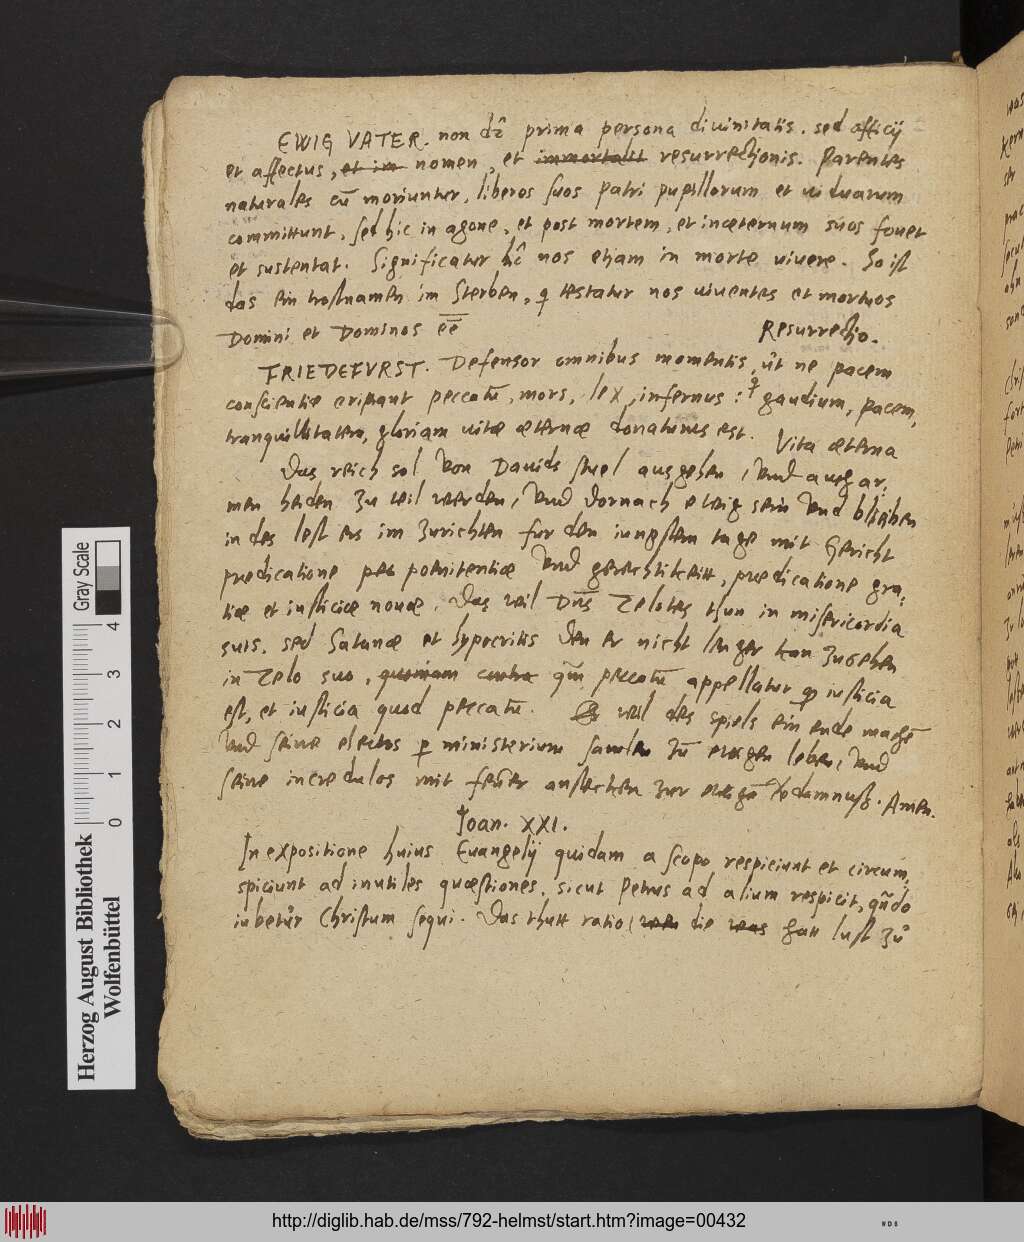 EWIG VATER. non dz prima persona diuinitatis. sed officij
et affectus, et im nomen, et immortalit resurrectionis. Parentes
naturales cū moriuntur, liberos suos patri pupillorum et uiduarum
committunt, sed hic in agone, et post mortem, et in æternum suos fouet
et sustentat. Significatur hc nos etiam in morte viuere. So ist
das ein trostnamen im Sterben, q testatur nos viuentes et mortuos
Domini et Dominos ēē Resurrectio.
FRIEDEFVRST. Defensor omnibus momentis, ut ne pacem
conscientiæ eripiant peccatū, mors, lex, infernus: q gaudium, pacem,
tranquillitatem, gloriam uitæ æternæ donaturus est. Vita æterna
Das reich sol von Dauids stuel ausgehen, vnd aus ar,
men heiden zu teil werden, vnd dornach ewig sein vnd bleiben
in des lest ers im zurichten fur den iungstem tage mit Gericht
prædicatione pec poenitentiæ vnd gerechtikeitt, prædicatione gra,
tiæ et iusticiæ nouæ. Das wil Dn̄s Zelotes thun in misericordia
suis. sed Satanæ et hypocritis den er nicht lenger kan zusehen
in Zelo suo, quoniam contra qm̄ peccatū appellatur qd iusticia
est, et iusticia quod peccatū. Er wil des spiels ein ende machē
vnd seine electos p ministerium samlen zū ewigen leben, vnd
seine incredulos mit feuer anstecken zur ewigē vodamnuß. Amen.
Ioan. XXI.
In expositione huius Euangelij quidam a scopo respiciunt et circum,
spiciunt ad inutiles quæstiones, sicut Petrus ad alium respicit, qn̄do
iubetur Christum sequi. Das thutt ratio, wen die was hatt lust zů
Herzog August Bibliothek
Wolfenbüttel
0 1 2 3 4
Gray Scale
http://diglib.hab.de/mss/792-helmst/start.htm?image=00432